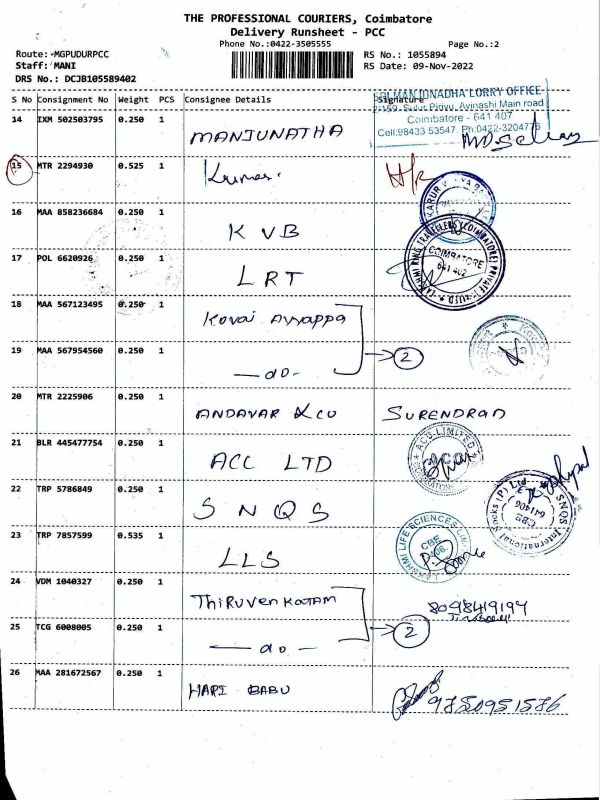 THE PROFESSIONAL COURIERS, Coimbatore
Delivery Runsheet - PCC
Phone No.:0422-3505555 Page No.:2
Route: MGPUDURPCC RS No.: 1055894
Staff: MANI RS Date: 09-Nov-2022
DRS No.: DCJB105589402
S No Consignment No Weight PCS Consignee Details Signature
SRI MANJUNADHA LORRY OFFICE
Sulur Pirivu, Avinashi Main road
Coimbatore - 641 407
Cell:98433 53547. Ph:0422-3204776
14 IXM 502503795 0.250 1 MANJUNATHA
15 MTR 2294930 0.525 1 Kumar
16 MAA 858236684 0.250 1 KVB
KARUR
17 POL 6620926 0.250 1 LRT
LAKSHMI RING TRAVELLERS (COIMBATORE) PRIVATE LIMITED
COIMBATORE
641 402
18 MAA 567123495 0.250 1 Kovai Ayyappa
19 MAA 567954560 0.250 1 —do— 2
20 MTR 2225906 0.250 1 ANDAVAR & CO SURENDRAN
21 BLR 445477754 0.250 1 ACC LTD
22 TRP 5786849 0.250 1 SNQS
SNQS International Socks (P) Ltd
CBE
641406
23 TRP 7857599 0.535 1 LLS
LAKSHMI LIFE SCIENCES LIMITED
CBE
24 VDM 1040327 0.250 1 Thiruvenkatam 8098419194
25 TCG 6008005 0.250 1 —do— 2
26 MAA 281672567 0.250 1 HARI BABU 9750951576